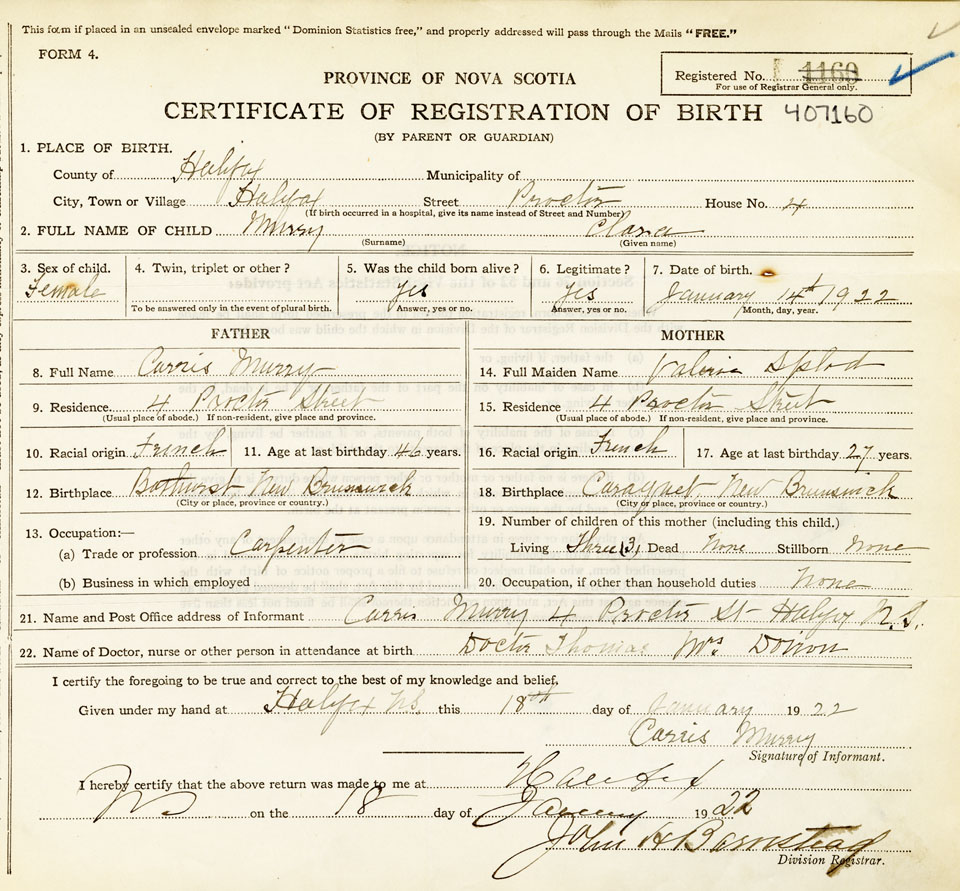 This form if placed in an unsealed envelope marked "Dominion Statistics free," and properly addressed will pass through the Mails "FREE."
FORM 4.
PROVINCE OF NOVA SCOTIA
Registered No. 1160
For use of Registrar General only.
CERTIFICATE OF REGISTRATION OF BIRTH 407160
(BY PARENT OR GUARDIAN)
1. PLACE OF BIRTH.
County of Halifax Municipality of
City, Town or Village Halifax Street Proctor House No. 4
(If birth occurred in a hospital, give its name instead of Street and Number)
2. FULL NAME OF CHILD Murry Clara
(Surname) (Given name)
3. Sex of child. 4. Twin, triplet or other? 5. Was the child born alive? 6. Legitimate? 7. Date of birth.
Female yes yes January 14th 1922
To be answered only in the event of plural birth. Answer, yes or no. Answer, yes or no. Month, day, year.
FATHER MOTHER
8. Full Name Carris Murry 14. Full Maiden Name Valerie
9. Residence 4 Proctor Street 15. Residence 4 Proctor Street
(Usual place of abode.) If non-resident, give place and province. (Usual place of abode.) If non-resident, give place and province.
10. Racial origin French 11. Age at last birthday 46 years. 16. Racial origin French 17. Age at last birthday 27 years.
12. Birthplace Bathurst New Brunswick 18. Birthplace Caraquet New Brunswick
(City or place, province or country.) (City or place, province or country.)
13. Occupation:— 19. Number of children of this mother (including this child.)
(a) Trade or profession Carpenter Living Three (3) Dead None Stillborn None
(b) Business in which employed 20. Occupation, if other than household duties None
21. Name and Post Office address of Informant Carris Murry 4 Proctor St Halifax N.S.
22. Name of Doctor, nurse or other person in attendance at birth. Doctor Thomas Mrs
I certify the foregoing to be true and correct to the best of my knowledge and belief,
Given under my hand at Halifax N.S. this 18th day of January 1922
Carris Murry
Signature of Informant.
I hereby certify that the above return was made to me at Halifax
NS on the 18 day of January 1922
John H Barnstead
Division Registrar.